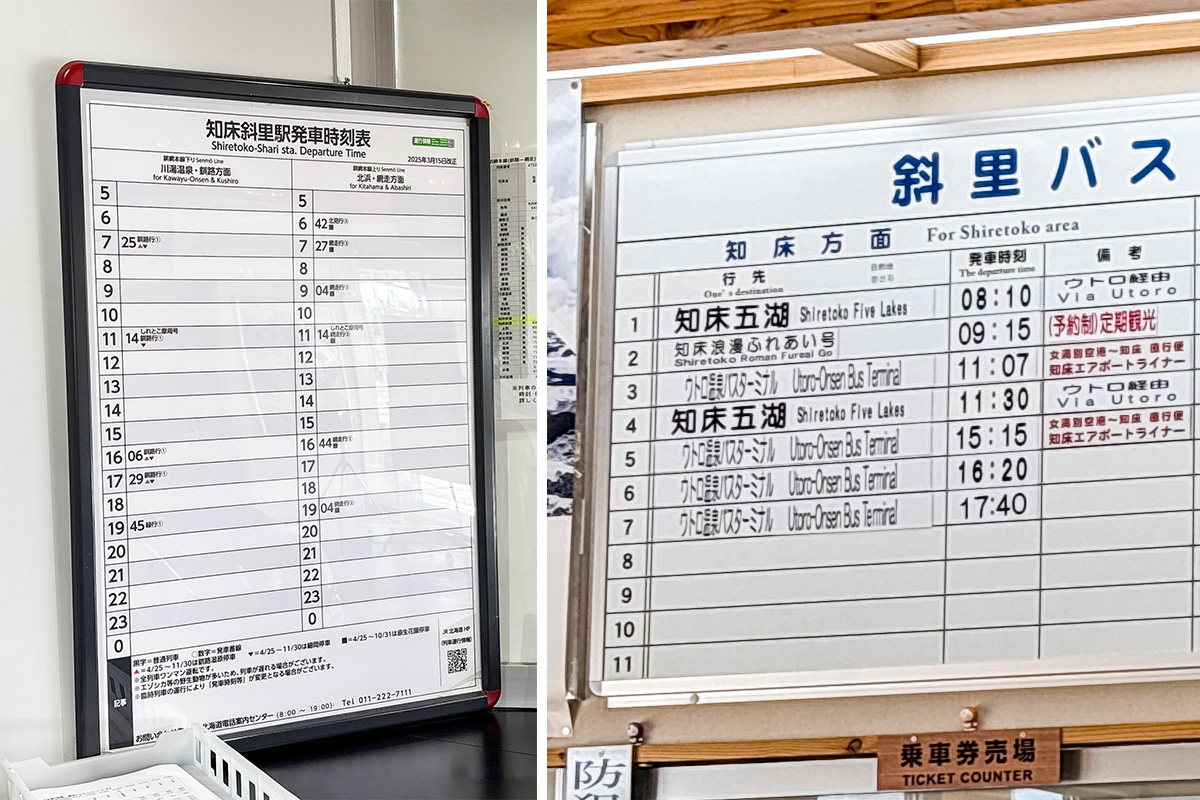 知床斜里駅発車時刻表
Shiretoko-Shari sta. Departure Time
運行情報
2025年3月15日改正
釧網本線下り Senmō Line
川湯温泉・釧路方面
for Kawayu-Onsen & Kushiro
釧網本線上り Senmō Line
北浜・網走方面
for Kitahama & Abashiri
5
6
7 25 釧路行① ▲▼
8
9
10
11 14 しれとこ摩周号 釧路行① ▼
12
13
14
15
16 06 釧路行① ▲▼
17 29 釧路行① ▲▼
18
19 45 緑行①
20
21
22
23
0
5
6 42 北見行② ■
7 27 網走行② ■
8
9 04 網走行② ■
10
11 14 しれとこ摩周号 網走行② ■
12
13
14
15
16 44 網走行② ■
17
18
19 04 網走行② ■
20
21
22
23
0
記事
黒字=普通列車 ○数字=発車番線
▲=4/25~11/30は釧路湿原停車 ▼=4/25~11/30は細岡停車 ■=4/25~10/31は原生花園停車
※全列車ワンマン運転です。
※エゾシカ等の野生動物が多いため、列車が遅れる場合がございます。
※臨時列車の運行により「発車時刻等」が変更となる場合がございます。
JR 北海道 HP
(列車運行情報)
お問い合わせ
北海道電話案内センター (8:00 ~ 19:00) Tel 011-222-7111
斜里バス
知床方面 For Shiretoko area
行先 One's destination 目的地
発車時刻 The departure time
備考
1 知床五湖 Shiretoko Five Lakes 08:10 ウトロ経由 Via Utoro
2 知床浪漫ふれあい号 Shiretoko Roman Fureai Go 09:15 (予約制)定期観光
3 ウトロ温泉バスターミナル Utoro-Onsen Bus Terminal 11:07 女満別空港~知床 直行便 知床エアポートライナー
4 知床五湖 Shiretoko Five Lakes 11:30 ウトロ経由 Via Utoro
5 ウトロ温泉バスターミナル Utoro-Onsen Bus Terminal 15:15 女満別空港~知床 直行便 知床エアポートライナー
6 ウトロ温泉バスターミナル Utoro-Onsen Bus Terminal 16:20
7 ウトロ温泉バスターミナル Utoro-Onsen Bus Terminal 17:40
8
9
10
11
防
乗車券売場
TICKET COUNTER